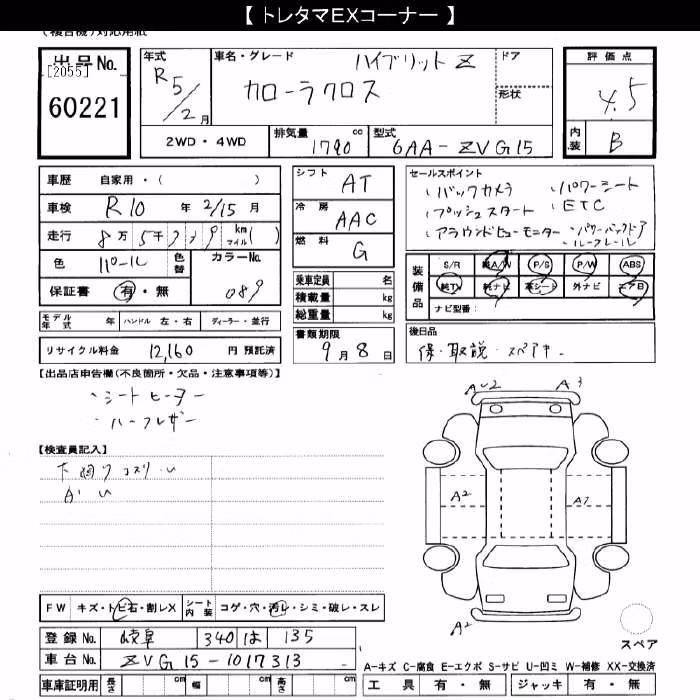 【 トレタマEXコーナー 】
(複合機)対応用紙
出品No.
[2055]
60221
年式
R5/2月
車名・グレード
ハイブリット Z
カローラクロス
ドア
形状
評価点
4.5
内装 B
2WD・4WD
排気量 1790 cc
型式 6AA-ZVG15
車歴 自家用・( )
車検 R10年 2/15月
走行 8万5千 km マイル( )
色 パール 色替
カラーNo. 089
保証書 有・無
シフト AT
冷房 AAC
燃料 G
乗車定員 名
積載量 kg
総重量 kg
セールスポイント
・バックカメラ ・パワーシート
・プッシュスタート ・ETC
・アラウンドビューモニター ・パワーバックドア
・ルーフレール
装備品
S/R 純A/W P/S P/W ABS
純TV 純ナビ 革シート 外ナビ エアB
ナビ型番:
モデル年式 年 ハンドル 左・右 ディーラー・並行
リサイクル料金 12,160 円 預託済
書類期限
9月8日
後日品
保・取説・スペアキー
【出品店申告欄(不良箇所・欠品・注意事項等)】
・シートヒーター
・ハーフレザー
【検査員記入】
A2 A3
A2 A1
A2
FW キズ・トビ石・割レX シート内装 コゲ・穴・汚レ・シミ・破レ・スレ
登録No. 岐阜 340 は 135
車台No. ZVG15-1017313
スペア
A-キズ C-腐食 E-エクボ S-サビ U-凹ミ W-補修 XX-交換済
車庫証明用 長さ cm 幅 cm 高さ cm
工具 有・無 ジャッキ 有・無